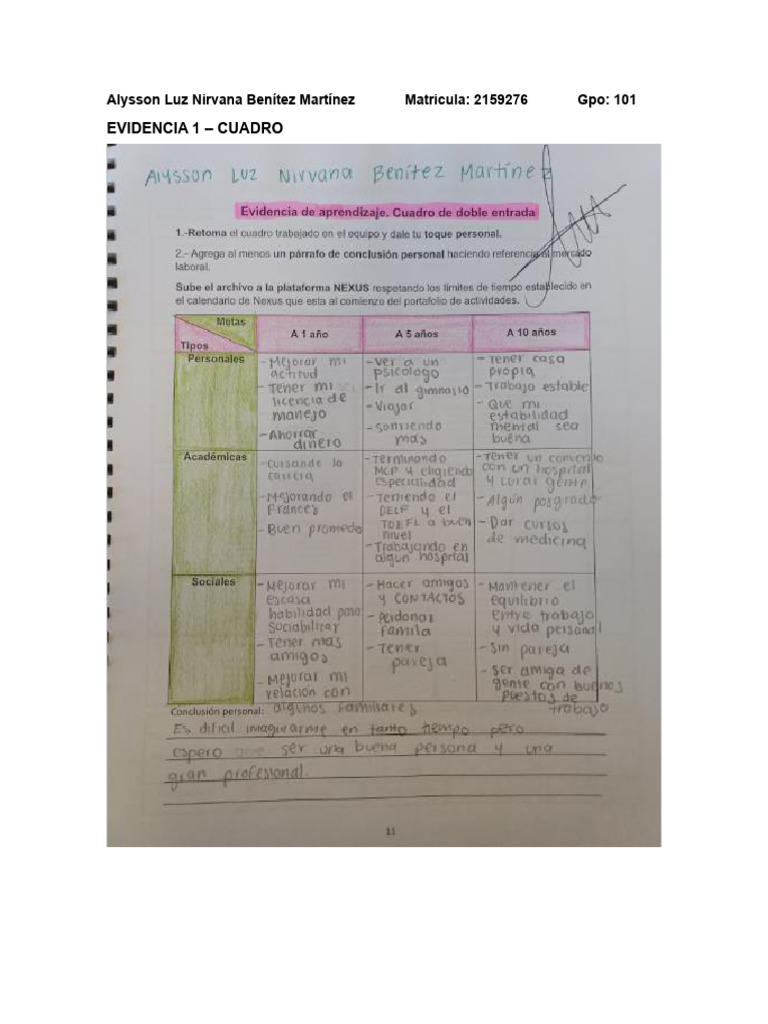 Alysson Luz Nirvana Benítez Martínez Matricula: 2159276 Gpo: 101
EVIDENCIA 1 – CUADRO
Alysson Luz Nirvana Benítez Martínez
Evidencia de aprendizaje. Cuadro de doble entrada
1.-Retoma el cuadro trabajado en el equipo y dale tu toque personal.
2.- Agrega al menos un párrafo de conclusión personal haciendo referencia al mercado
laboral.
Sube el archivo a la plataforma NEXUS respetando los límites de tiempo establecido en
el calendario de Nexus que esta al comienzo del portafolio de actividades.
Metas
Tipos
A 1 año
A 5 años
A 10 años
Personales
- Mejorar mi
actitud
- Tener mi
licencia de
manejo
- Ahorrar
dinero
- Ver a un
psicólogo
- Ir al gimnasio
- Viajar
- Sonriendo
más
- Tener casa
propia
- Trabajo estable
- Que mi
estabilidad
mental sea
buena
Académicas
- Cursando la
carrera
- Mejorando el
Frances
- Buen promedio
- Terminando
MCP y eligiendo
especialidad
- Teniendo el
DELF y el
TOEFL a buen
nivel
- Trabajando en
algún hospital
- Tener un convenio
con un hospital
y curar gente
- Algún posgrado
- Dar cursos
de medicina
Sociales
- Mejorar mi
escasa
habilidad para
sociabilizar
- Tener mas
amigos
- Mejorar mi
relación con
algunos familiares
- Hacer amigos
y CONTACTOS
- Perdonar
familia
- Tener
pareja
- Mantener el
equilibrio
entre trabajo
y vida personal
- Sin pareja
- Ser amiga de
gente con buenos
puestos de
trabajo
Conclusión personal:
Es dificil imaginarme en tanto tiempo pero
espero que ser una buena persona y una
gran profesional.
11